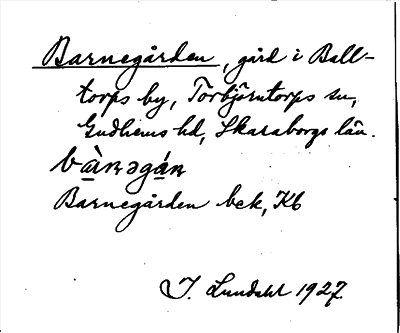 Barnegården, gård i Ball-
torps by, Torbjörntorps sn,
Gudhems hd, Skaraborgs län.
bàrnəgán
Barnegården bek, Kb
I. Lundahl 1927.